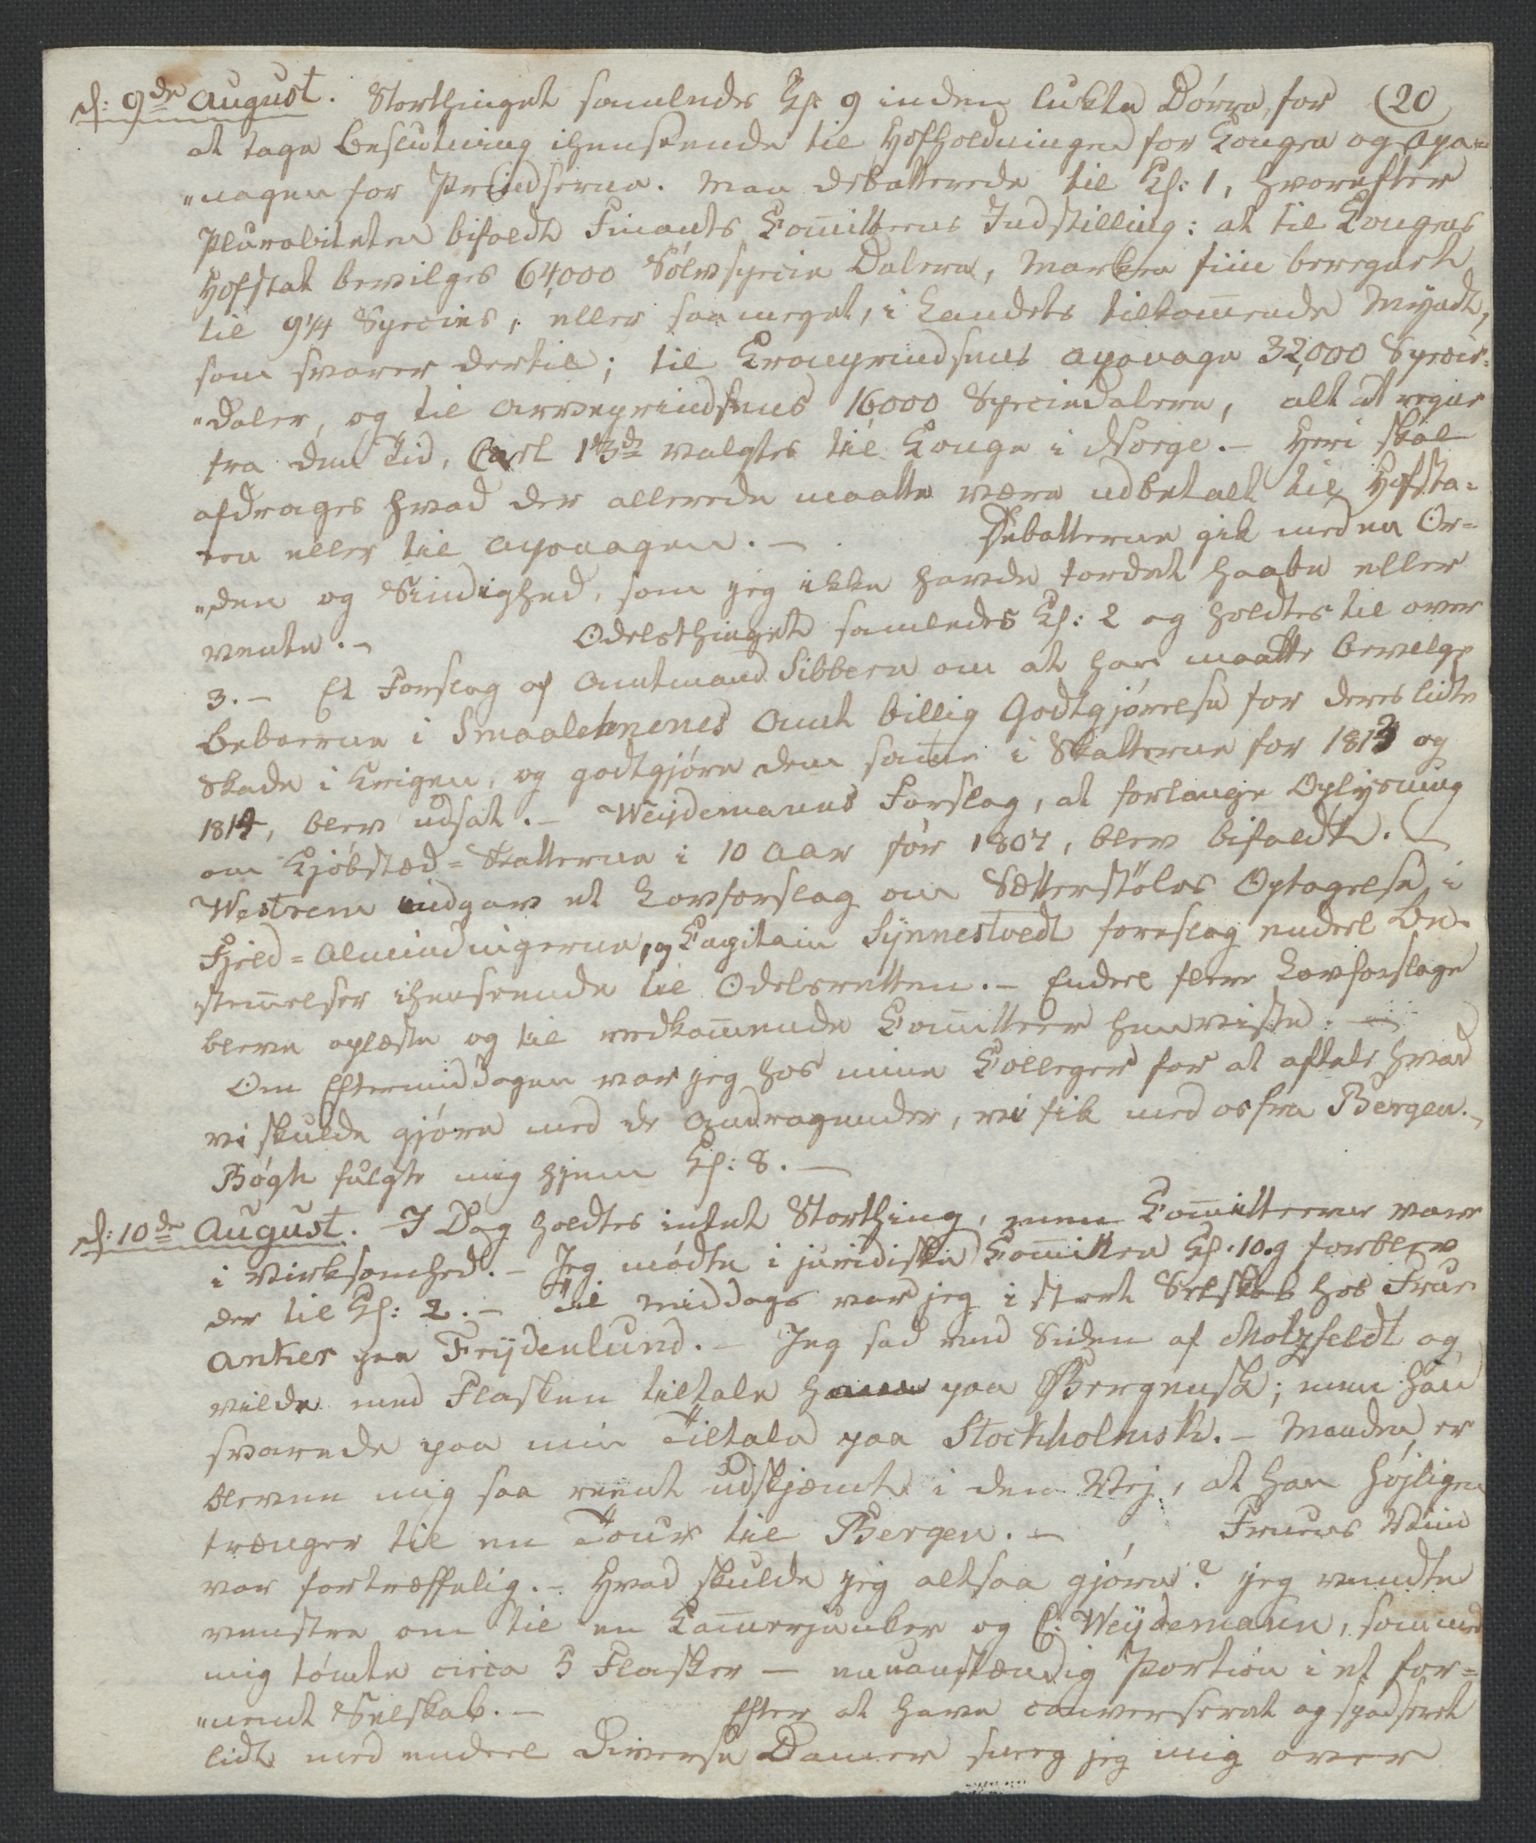 d: 9de August. Storthinget samledes Kl: 9 inden lukte Dørre, for (20
at tage Beslutning ihenseende til Hofholdningen for Kongen og Apa-
"nagen for Prindserne. Man debatterede til Kl: 1, hvorefter
Pluraliteten bifaldt Finants Com̅itteens Indstilling: at til Kongens
Hofstat bevilges 64,000 Sølvspecie Dalere, Marken fiin beregnet
til 9 1/4 Species, eller saameget, i Landets tilkom̅ende Myndt,
som svarer dertil; til Kronprindsens Apanage 32,000 Specie-
"daler, og til Arveprindsens 16000 Speciedalere, alt at regne
fra den Tid, Carl 13de valgtes til Konge i Norge. – Heri skal
afdrages hvad der allerede maatte være udbetalt til Hofsta-
ten eller til Apanagen. – Debatterne gik med en Or-
"den og Sindighed, som jeg ikke havde tordet haabe eller
vente. – Odelsthinget samledes Kl: 2 og holdtes til over
3. – Et Forslag af Amtmand Sibbern om at her maatte bevilges
Beboerne i Smaalehnenes Amt billig Godtgjørelse for deres lidte
Skade i Krigen, og godtgjøre dem sam̅e i Skatterne for 1813 og
1814, blev udsat. – Weydemanns Forslag, at forlange Oplysning
om Kjøbstæd-Skatterne i 10 Aar før 1807, blev bifaldt. –
Westrem indgav et Lovforslag om Sætterstøles Optagelse i
Fjeld-Almindingerne, og Capitain Synnestvedt foreslog endeel Be-
stem̅elser ihenseende til Odelsretten. – Endeel flere Lovforslage
bleve oplæste og til vedkom̅ende Com̅itteer henviste. –
Om Eftermiddagen var jeg hos mine Colleger for at aftale hvad
vi skulde gjøre med de Andragender, vi fik med os fra Bergen. –
Bøgh fulgte mig hjem Kl: 8. –
d: 10de August. – I Dag holdtes intet Storthing, men Com̅itteerne vare
i Virksomhed. – Jeg mødte i juridiske Com̅itteen Kl: 10 og forblev
der til Kl: 2. – Til Middags var jeg i stort Selskab hos Frue
Anker paa Frydenlund. – Jeg sad ved Siden af Motzfeldt og
vilde med Flasken tiltale ham paa Bergensk; men han
svarede paa min Tiltale paa Stockholmsk. – Manden er
bleven mig saa reent udskjæmt i den Vej, at han højligen
trænger til en Tour til Bergen. – Fruens Viin
var fortræffelig. – Hvad skulde jeg altsaa gjøre? jeg vendte
venstre om til en Kam̅erjunker og C: Weydemann, som med
mig tømte circa 5 Flasker – en uanstændig Portion i et for-
"nemt Selskab. – Efter at have converseret og spadseret
lidt med endeel diverse Damer sneg jeg mig over